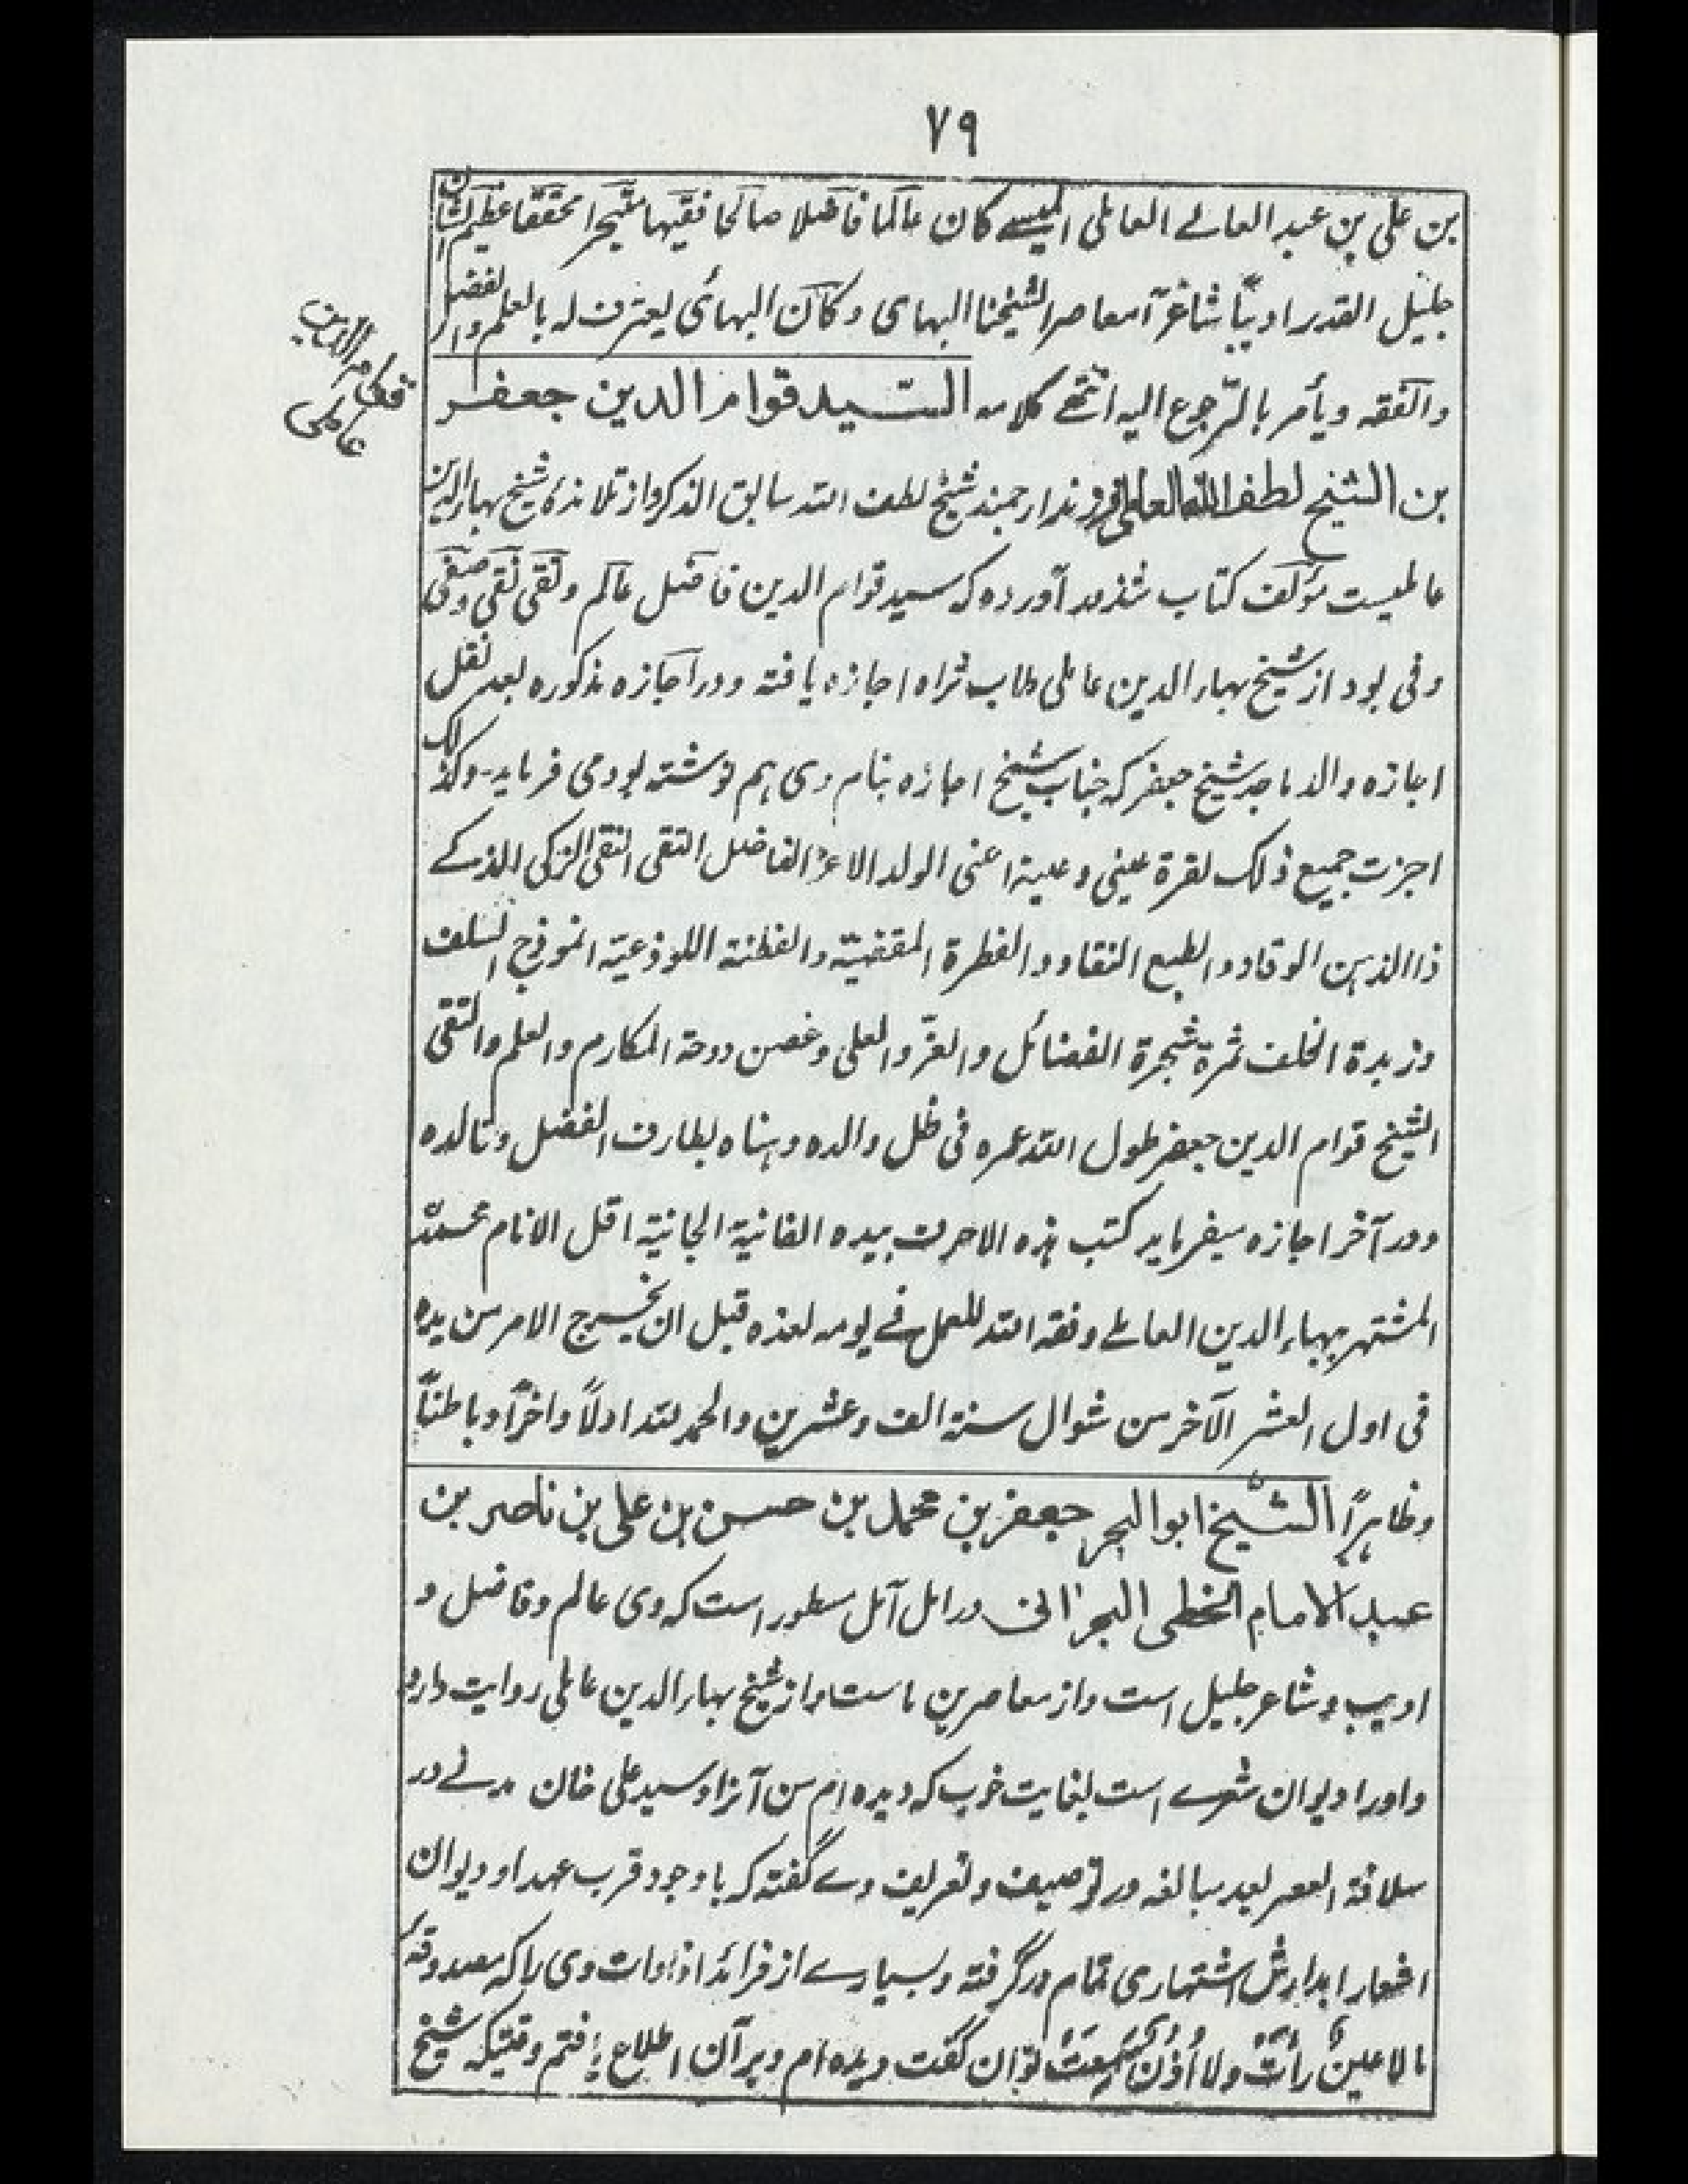 ۷۹
بن علی بن عبد العالے العاملی المیسے کان عالما فاضلا صالحا فقیها متبحرا محققا عظیم الشان
جلیل القدر ادیباً شاعراً معاصر الشیخنا البهای و کان البهائی یعترف له بالعلم والفضل
والفقه و یأمر بالرّجوع الیه انتهی کلامه السّید قوام الدین جعفر
بن الشیخ لطف الله العاملی فرزند ارجمند شیخ لطف الله سابق الذکر و از تلامذهٔ شیخ بهاء الدین
عاملیست مؤلف کتاب شذور آورده که سید قوام الدین فاضل عالم و تقی نقی وصفی
وفی بود از شیخ بهاء الدین عاملی طاب ثراه اجازه یافته و در اجازه مذکوره بعد نقل
اجازه والد ماجد شیخ جعفر که جناب شیخ اجازه بنام وی هم نوشته بود می فرماید۔ وکذلک
اجزت جمیع ذلک لقرة عینی و عینه اعنی الولد الاعز الفاضل التقی النقی الزکی الذکے
ذا الذهن الوقاد و الطبع النقاد و الفطرة و الفطنة اللوذعیة انموذج السلف
وزبدة الخلف ثمرة شجرة الفضائل والعزّ والعلی وغصن دوحة المکارم والعلم والتقی
الشیخ قوام الدین جعفر طول الله عمره فی ظل والده و هناه بطارف الفضل وتالده
و در آخر اجازه میفرماید کتب هذه الاحرف بیده الفانیة الجانیة اقل الانام محمد
المشتهر ببهاء الدین العاملے وفقه الله للعمل فے یومه لغده قبل ان یخرج الامر من یده
فی اول العشر الآخر من شوال سنة الف وعشرین والحمد لله اولاً واخراً وباطناً
وظاهراً الشّیخ ابو البحر جعفر بن محمد بن حسن بن علی بن ناصر بن
عبد الامام الخطی البحرانی در امل آمل سطور است که وی عالم و فاضل و
ادیب و شاعر جلیل است و از معاصرین ماست و از شیخ بهاء الدین عاملی روایت دارد
و اورا دیوان شعرے است بغایت خوب که دیده ام من آنرا و سید علی خان مدنے در
سلافة العصر بعد مبالغه در توصیف و تعریف وے گفته که با وجود قرب عهد او دیوان
اشعار ابدارش اشتهاری تمام در گرفته و بسیارے از فرائد افادات وی را که مصدوقهٔ
مالا عینٌ رأت ولا اُذنٌ سَمِعَت توان گفت دیده ام و بر آن اطلاع یافتم وقتیکه شیخ
قوام الدین
عاملی